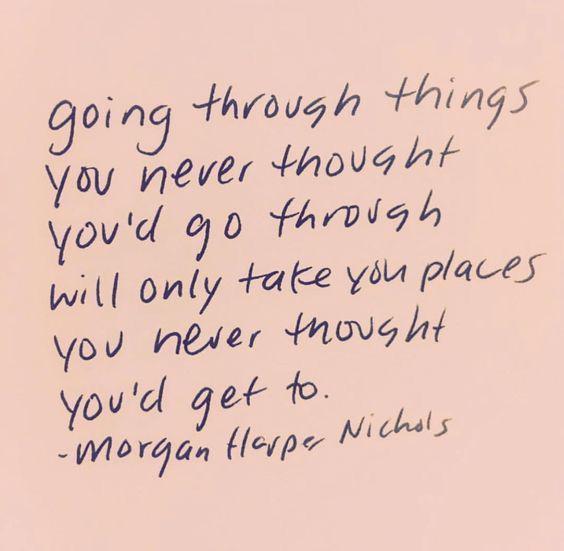 going through things
you never thought
you'd go through
will only take you places
you never thought
you'd get to.
-Morgan Harper Nichols